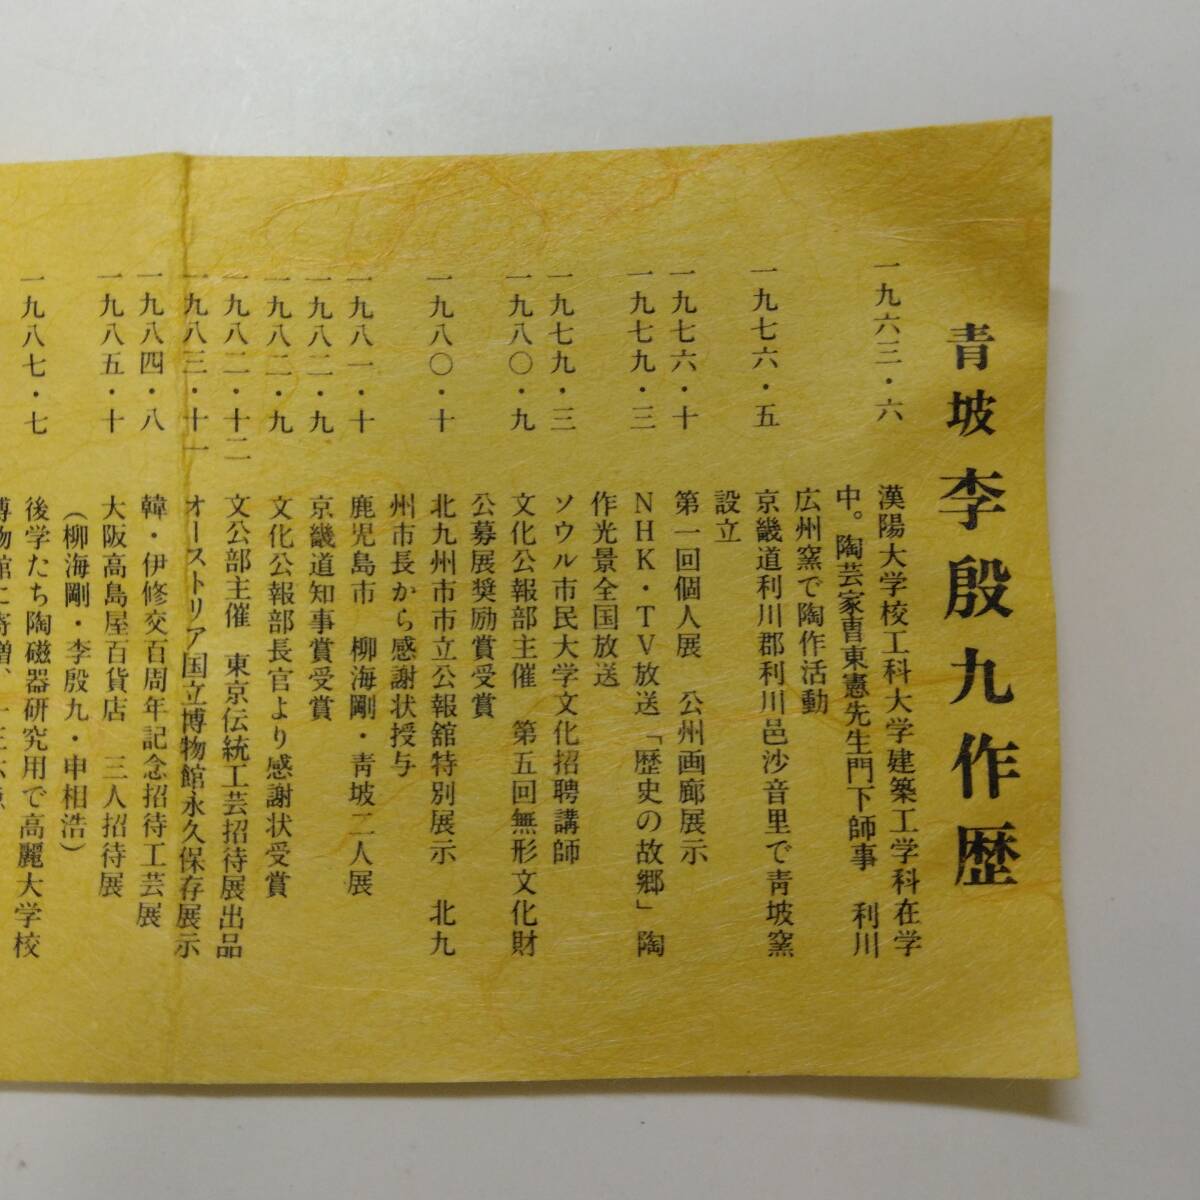 青坡李殷九作歴
一九六三・六 漢陽大学校工科大学建築工学科在学
中。陶芸家曺東憲先生門下師事 利川
広州窯で陶作活動
一九七六・五 京畿道利川郡利川邑沙音里で青坡窯
設立
一九七六・十 第一回個人展 公州画廊展示
一九七九・三 NHK・TV放送「歴史の故郷」陶
作光景全国放送
一九七九・三 ソウル市民大学文化招聘講師
一九八〇・九 文化公報部主催 第五回無形文化財
公募展奨励賞受賞
一九八〇・十 北九州市市立公報舘特別展示 北九
州市長から感謝状授与
一九八一・十 鹿児島市 柳海剛・青坡二人展
一九八二・九 京畿道知事賞受賞
一九八二・九 文化公報部長官より感謝状受賞
一九八二・十二 文公部主催 東京伝統工芸招待展出品
一九八三・十一 オーストリア国立博物館永久保存展示
一九八四・八 韓・伊修交百周年記念招待工芸展
一九八五・十 大阪高島屋百貨店 三人招待展
(柳海剛・李殷九・申相浩)
一九八七・七 後学たち陶磁器研究用で高麗大学校
博物館に寄贈、